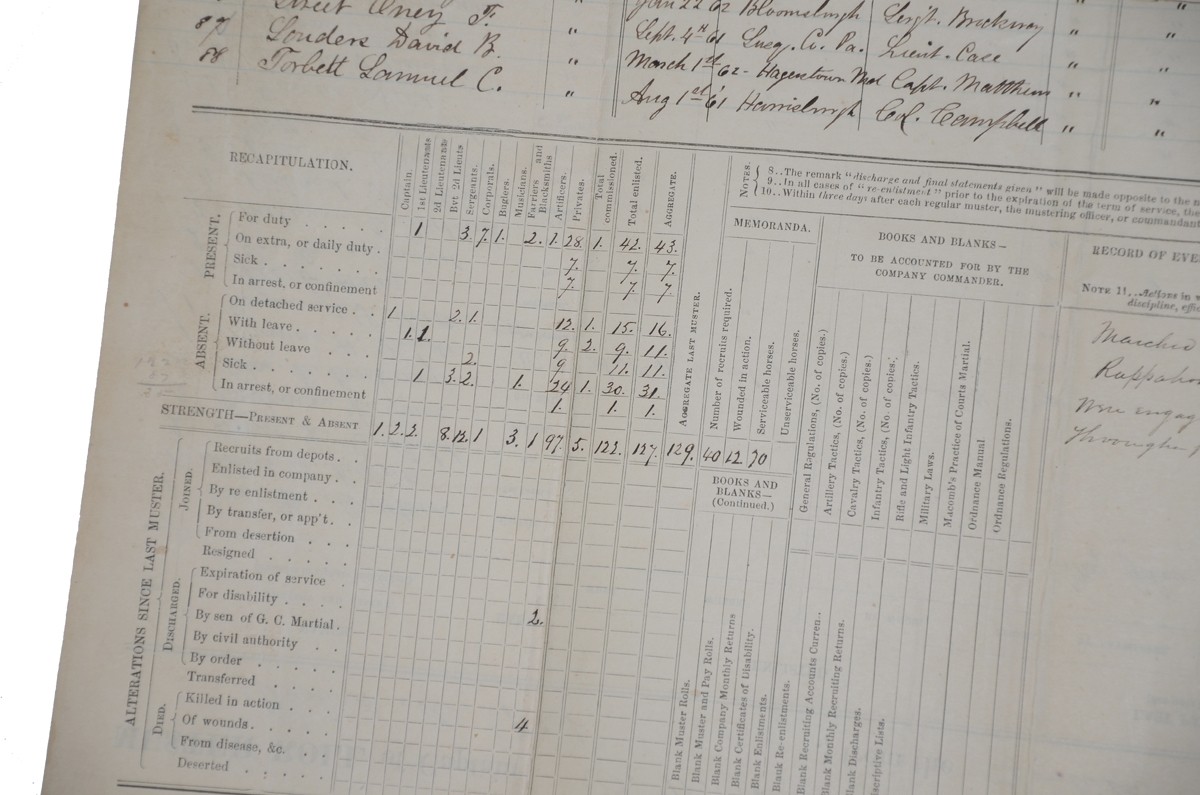 Street Oney F. " Jan 22 62 Bloomsburgh Sergt. Brockway " "
87 Souders David B. " Sept. 4th 61 Susq. Co. Pa. Lieut. Case " "
88 Torbett Samuel C. " March 1st 62 - Hagerstown Md Capt. Matthews " "
" Aug 1st 61 Harrisburgh Col. Campbell " "
RECAPITULATION.
Captain.
1st Lieutenants
2d Lieutenants
Bvt 2d Lieuts
Sergeants.
Corporals.
Buglers.
Musicians.
Farriers and Blacksmiths
Artificers.
Privates.
Total commissioned.
Total enlisted.
AGGREGATE.
NOTES.
8..The remark "discharge and final statements given" will be made opposite to the
9..In all cases of "re-enlistment" prior to the expiration of the term of service, the
10..Within three days after each regular muster, the mustering officer, or commandant
PRESENT.
For duty 1 3. 7. 1. 2. 1. 28. 1. 42. 43.
On extra, or daily duty. 7. 7. 7.
Sick 7. 7. 7
In arrest, or confinement
ABSENT.
On detached service 1 2. 1. 12. 1. 15. 16.
With leave 1. 1. 9. 2. 9. 11.
Without leave 2. 9 11. 11.
Sick 1 3. 2. 1. 24 1. 30. 31.
In arrest, or confinement 1. 1. 1.
STRENGTH—PRESENT & ABSENT 1. 2. 2. 8. 12. 1 3. 1 97. 5. 122. 127. 129. 40 12. 70
AGGREGATE LAST MUSTER.
MEMORANDA.
Number of recruits required.
Wounded in action.
Serviceable horses.
Unserviceable horses.
BOOKS AND BLANKS—
TO BE ACCOUNTED FOR BY THE
COMPANY COMMANDER.
General Regulations, (No. of copies.)
Artillery Tactics, (No. of copies.)
Cavalry Tactics, (No. of copies.)
Infantry Tactics, (No. of copies.)
Rifle and Light Infantry Tactics.
Military Laws.
Macomb's Practice of Courts Martial.
Ordnance Manual
Ordnance Regulations.
RECORD OF EVE
NOTE 11..Actions in
discipline, effic
Marched
Rappahan
Were engag
Through
ALTERATIONS SINCE LAST MUSTER.
JOINED.
Recruits from depots.
Enlisted in company
By re enlistment
By transfer, or app't.
From desertion
Resigned
DISCHARGED.
Expiration of service
For disability
By sen of G. C. Martial. 2.
By civil authority
By order
Transferred
DIED.
Killed in action
Of wounds. 4
From disease, &c.
Deserted
BOOKS AND
BLANKS—
(Continued.)
Blank Muster Rolls.
Blank Muster and Pay Rolls.
Blank Company Monthly Returns
Blank Certificates of Disability.
Blank Enlistments.
Blank Re-enlistments.
Blank Recruiting Accounts Curren.
Blank Monthly Recruiting Returns.
Blank Discharges.
scriptive Lists.